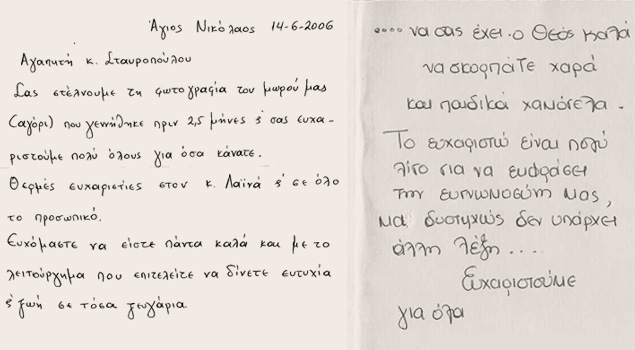 Άγιος Νικόλαος 14-6-2006
Αγαπητή κ. Σταυροπούλου
Σας στέλνουμε τη φωτογραφία του μωρού μας
(αγόρι) που γεννήθηκε πριν 2,5 μήνες & σας ευχα-
ριστούμε πολύ όλους για όσα κάνατε.
Θερμές ευχαριστίες στον κ. Λαϊνά & σε όλο
το προσωπικό.
Ευχόμαστε να είστε πάντα καλά και με το
λειτούργημα που επιτελείτε να δίνετε ευτυχία
& ζωή σε τόσα ζευγάρια
.... να σας έχει ο Θεός καλά
να σκορπάτε χαρά
και παιδικά χαμόγελα.
Το ευχαριστώ είναι πολύ
λίγο για να εκφράσει
την ευγνωμοσύνη μας,
μα δυστυχώς δεν υπάρχει
άλλη λέξη ....
Ευχαριστούμε
για όλα